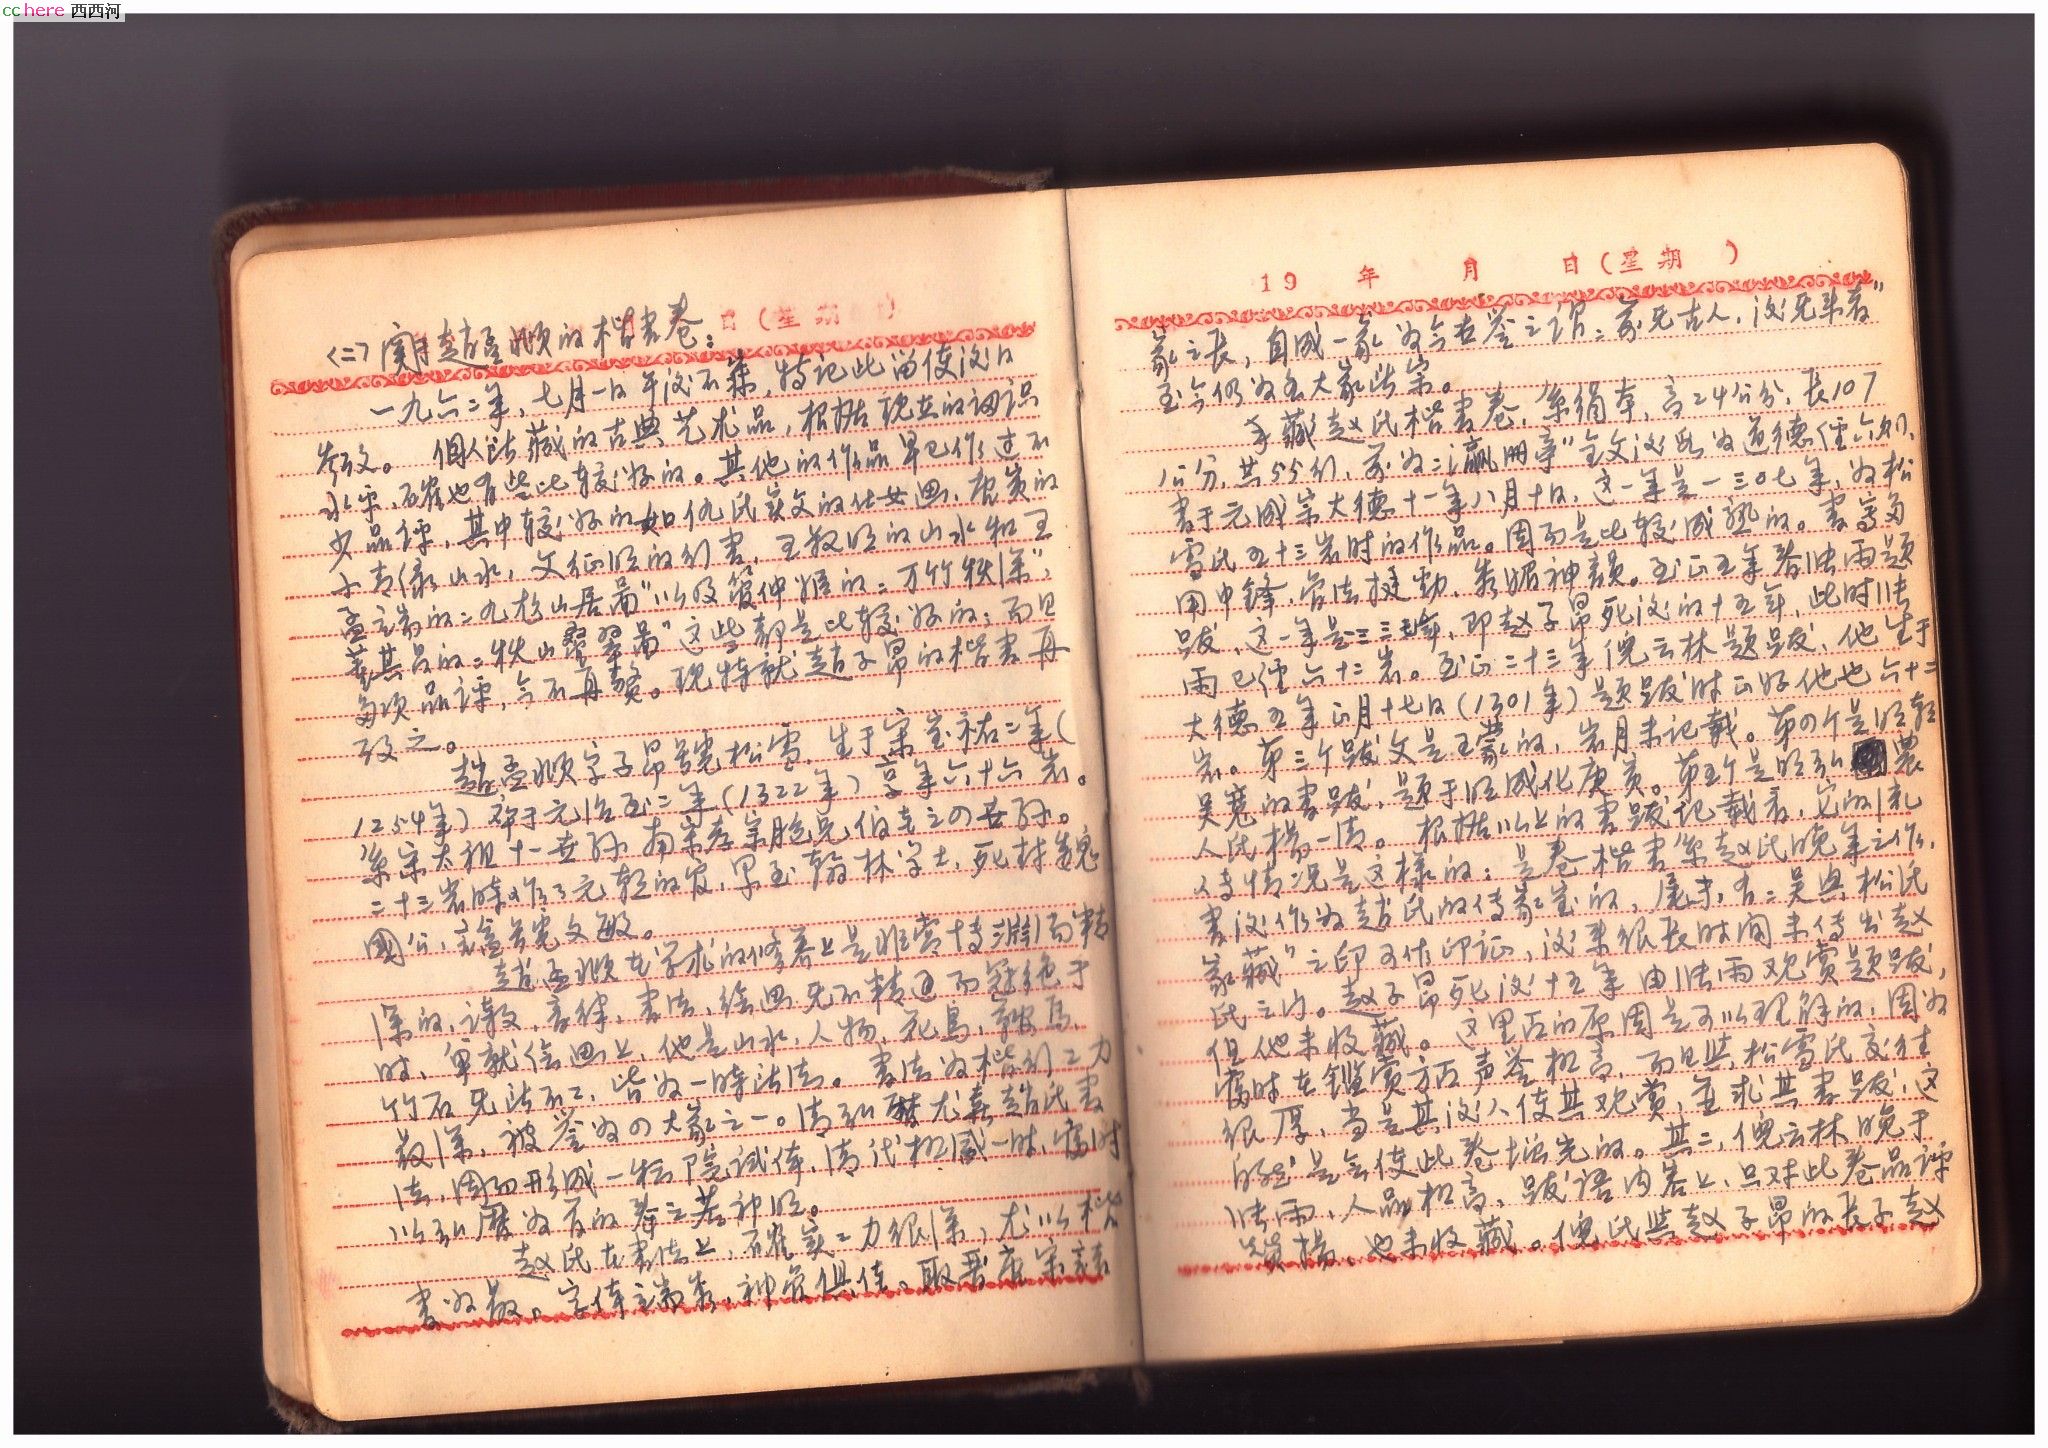 cchere 西西河
日(星期 )
<二>关于赵孟頫的楷书卷:
一九六二年,七月一日午后不寐,特记此留使后日
参考。 個人所藏的古典艺术品,根据现在的认识
水平,确也有些比较好的。其他的作品早已作过不
少品评,其中较好的如仇氏实文的仕女画,唐寅的
子青绿山水,文征明的行書,王穀祥的山水和王
孟端的"九龙山居啚"以及管仲姬的"万竹秋深",
董其昌的"秋山叠翠啚"这些都是比较好的;而且
多项品评,今不再贅。现特就赵子昂的楷書再
孜之。
趙孟頫字子昂號松雪,生于宋宝祐二年(
1254年)卒于元治至二年(1322年)享年六十六岩。
係宋太祖十一世孙,南宋孝宗胞兄伯圭之四世孙。
二十三岩時,作了元朝的官,累至翰林学士,死封魏
國公,諡號文敏。
趙孟頫在学术的修养上是非常博渊而精
深的,诗文,音律,書法,绘画无不精通而冠绝于
时,单就绘画上,他是山水,人物,花鳥,鞍馬,
竹石无所不工,皆为一時所法。書法为楷行工力
最深,被誉为四大家之一。清弘曆尤喜趙氏書
法,因而形成一种院试体,清代极盛一时,
以弘曆为首的奉之若神明。
赵氏在書法上,确实工力很深,尤以楷
書为最。字体端秀,神负俱佳。取晋唐宋诸
19 年 月 日(星期 )
家之长,自成一家,为今古誉之谓"前无古人,後无来者"
至今仍为各大家所宗。
手藏赵氏楷書卷,係绢本,高24公分,长107
公分,共55行,前为"瀛册亭"全文後段为道德经六则,
書于元成宗大德十一年八月十日,这一年是一三〇七年,为松
雪氏五十三岩时的作品。因而是比较成熟的。書写多
用中锋,骨法挺劲,秀媚神韻。至正五年春张雨题
跋,这一年是三三七年,即赵子昂死後的十五年,此时张
雨已经六十二岩。至正二十三年倪云林题跋,他生于
大德五年正月十七日(1301年)题跋时正好他也六十二
岩。第三个跋文是王蒙的,岩月未记載。第四个是明朝
吴宽的書跋,题于明成化庚寅。第五个是明弘農
人氏杨一清。 根据以上的書跋记載看,它的流
传情况是这樣的:是卷楷書係赵氏晚年之作,
書後作为趙氏的传家宝的,尾末,有"吴興松氏
家藏"之印可作印证,後来很长时间未传出赵
氏之门。赵子昂死後十五年由张雨观赏题跋,
但他未收藏。这里的原因是可以理解的,因为
當时在鑑赏方面声誉极高,而且與松雪氏交往
很厚,当是其後人使其观赏,並求其書跋,这
自然是会使此卷增光的。其二,倪云林晚于
张雨,人品极高,跋语内容上,只对此卷品评
赞揚,也未收藏。倪氏與赵子昂的长子赵